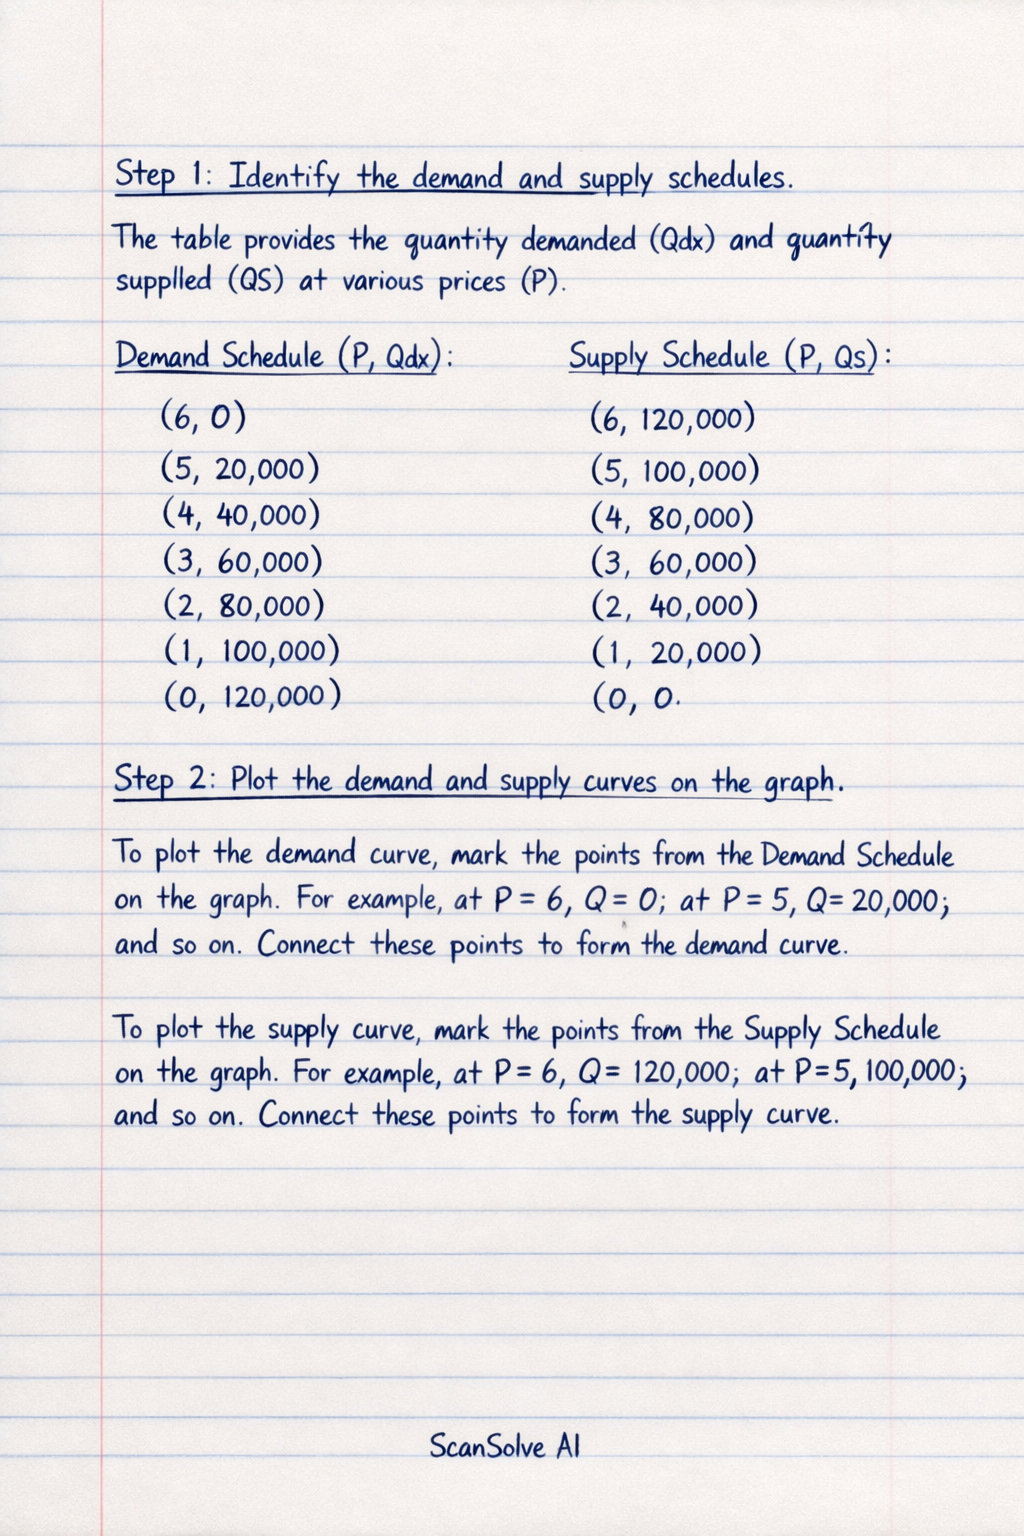 Step 1: Identify the demand and supply schedules.
The table provides the quantity demanded (Qdx) and quantity
supplled (QS) at various prices (P).
Demand Schedule (P, Qdx):
Supply Schedule (P, Qs):
(6, 0)
(6, 120,000)
(5, 20,000)
(5, 100,000)
(4, 40,000)
(4, 80,000)
(3, 60,000)
(3, 60,000)
(2, 80,000)
(2, 40,000)
(1, 100,000)
(1, 20,000)
(0, 120,000)
(0, 0.
Step 2: Plot the demand and supply curves on the graph.
To plot the demand curve, mark the points from the Demand Schedule
on the graph. For example, at P = 6, Q = 0; at P = 5, Q = 20,000;
and so on. Connect these points to form the demand curve.
To plot the supply curve, mark the points from the Supply Schedule
on the graph. For example, at P = 6, Q = 120,000; at P=5, 100,000;
and so on. Connect these points to form the supply curve.
ScanSolve AI